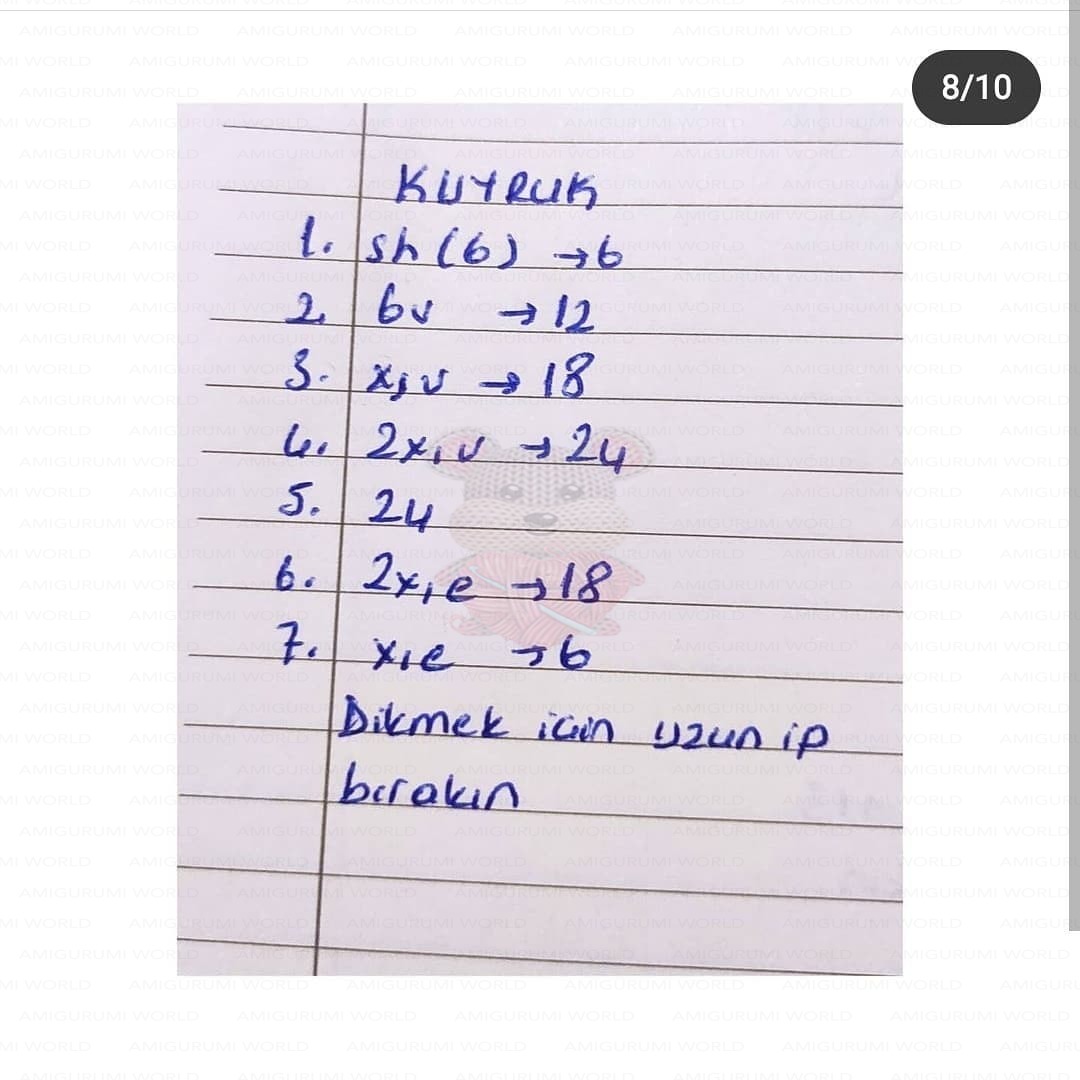 8/10
KUYRUK
1. sh (6) →6
2. 6v →12
3. x,v → 18
4. 2x,v →24
5. 24
6. 2x,e →18
7. x,e →6
Dikmek için uzun ip
bırakın
AMIGURUMI WORLD